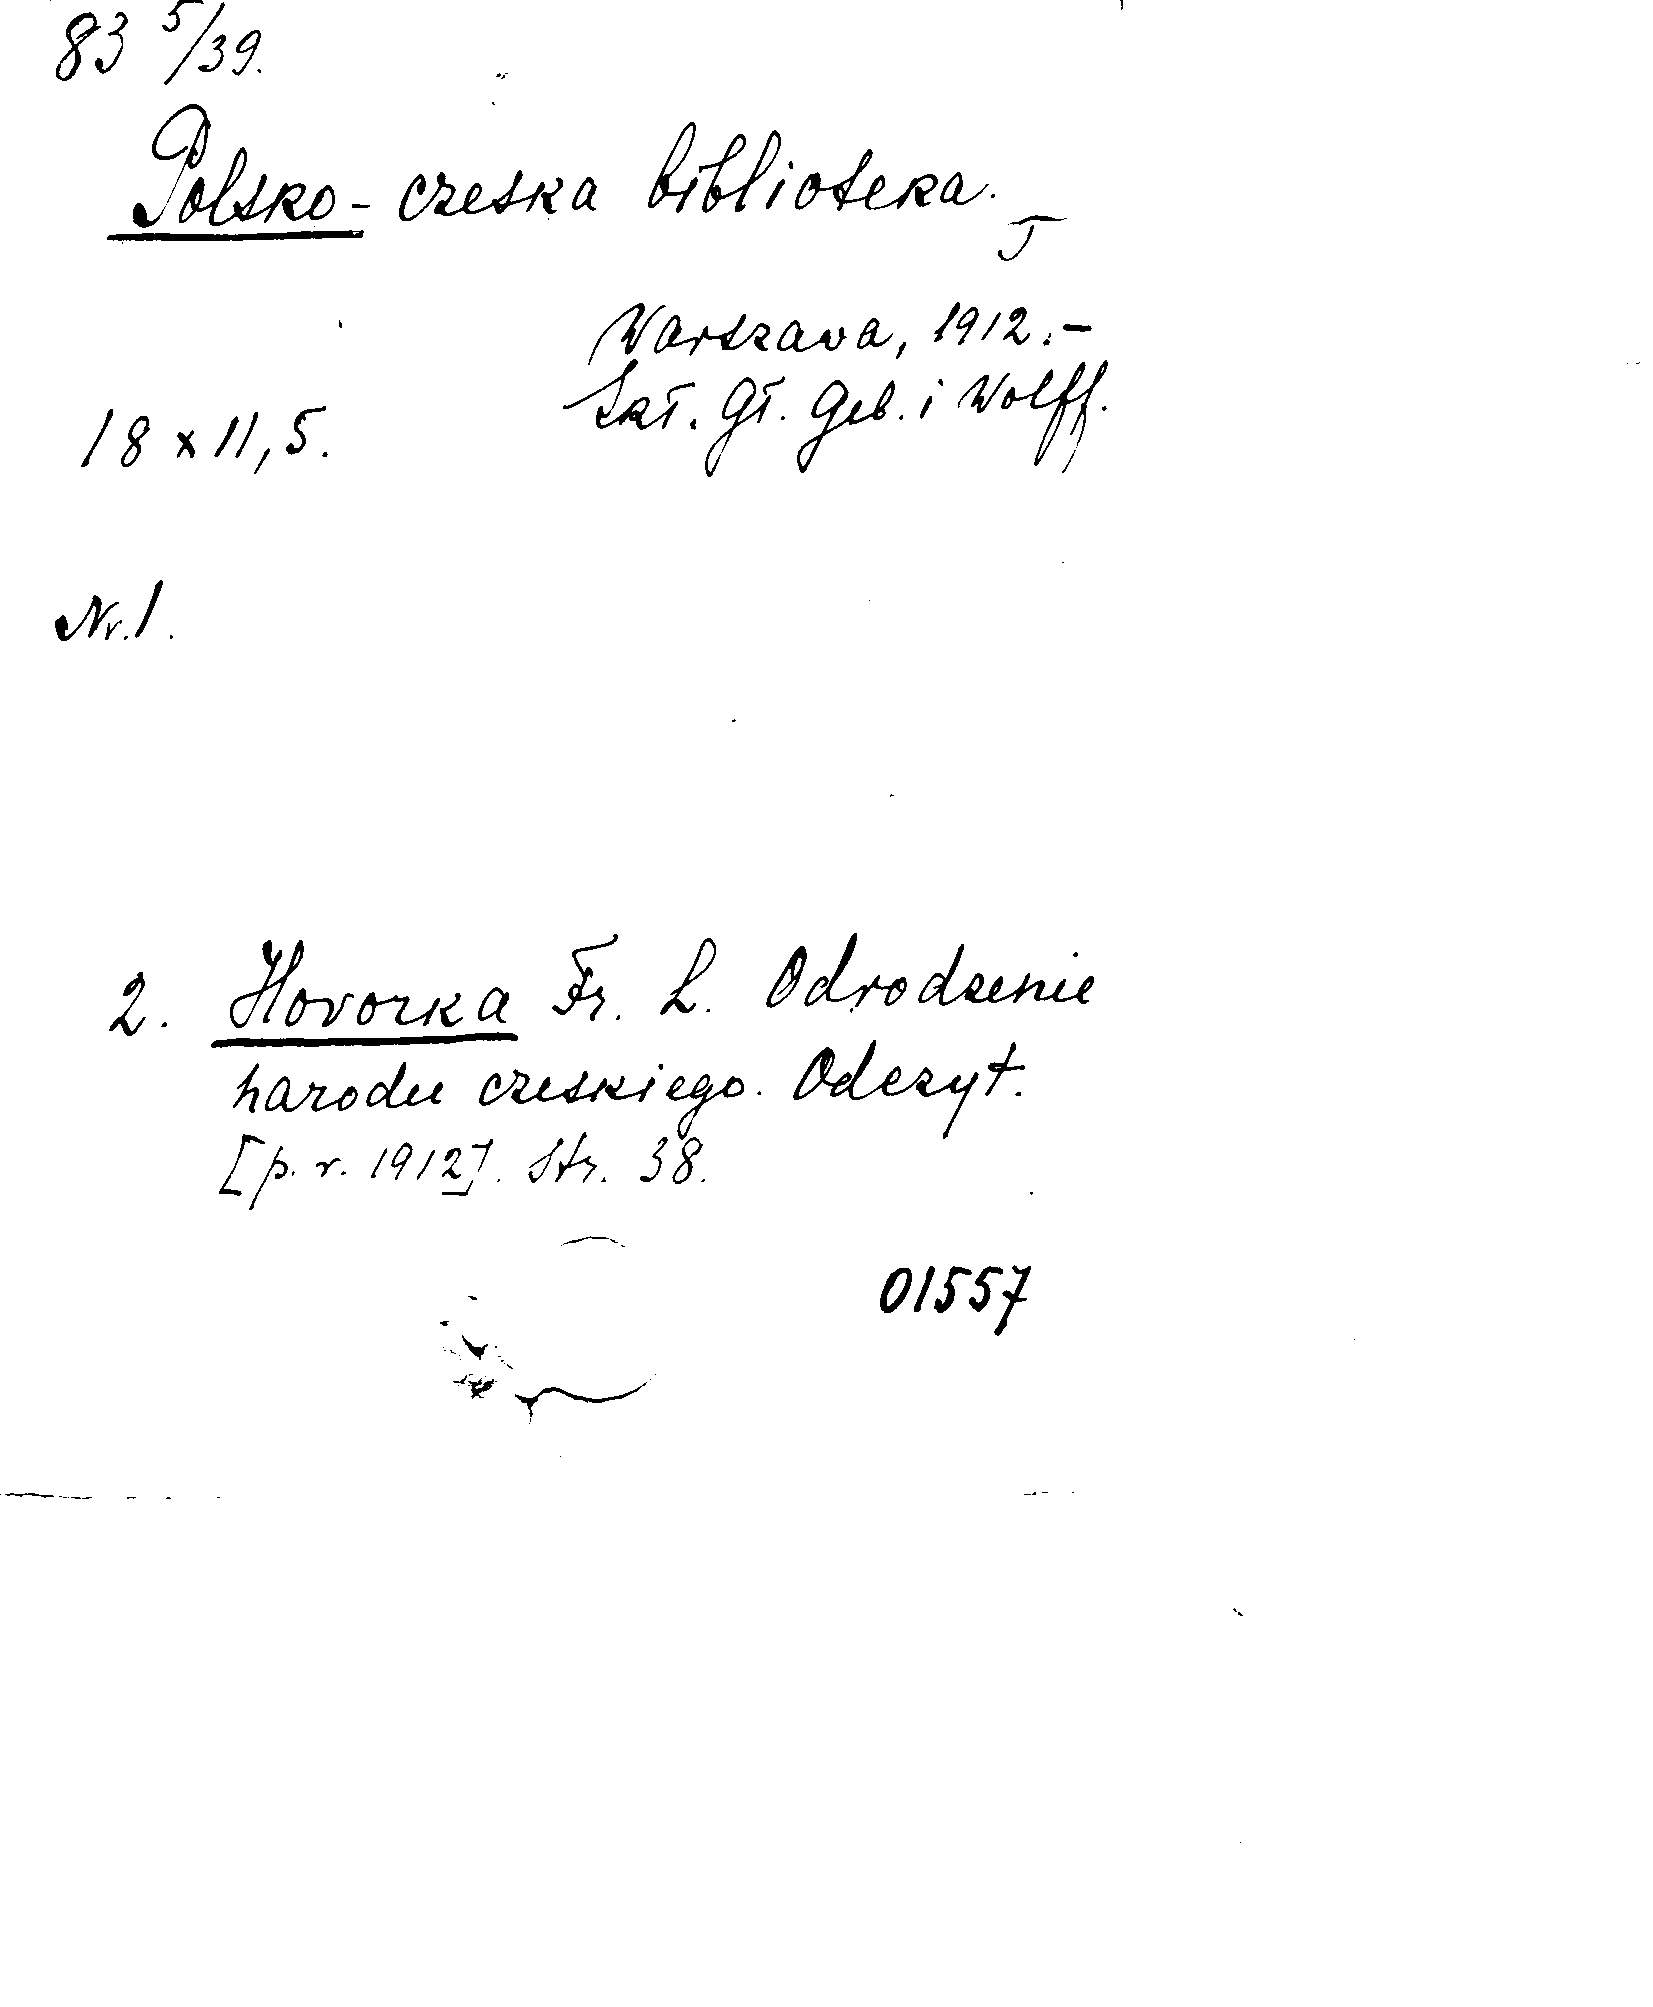 83 5/39.
Polsko-czeska biblioteka.
Warszawa, 1912.-
Skł. Gł. Geb. i Wolff.
18 x 11,5.
Nr. 1.
2. Hovorka Fr. L. Odrodzenie
narodu czeskiego. Odczyt.
[p. r. 1912]. Str. 38.
01557